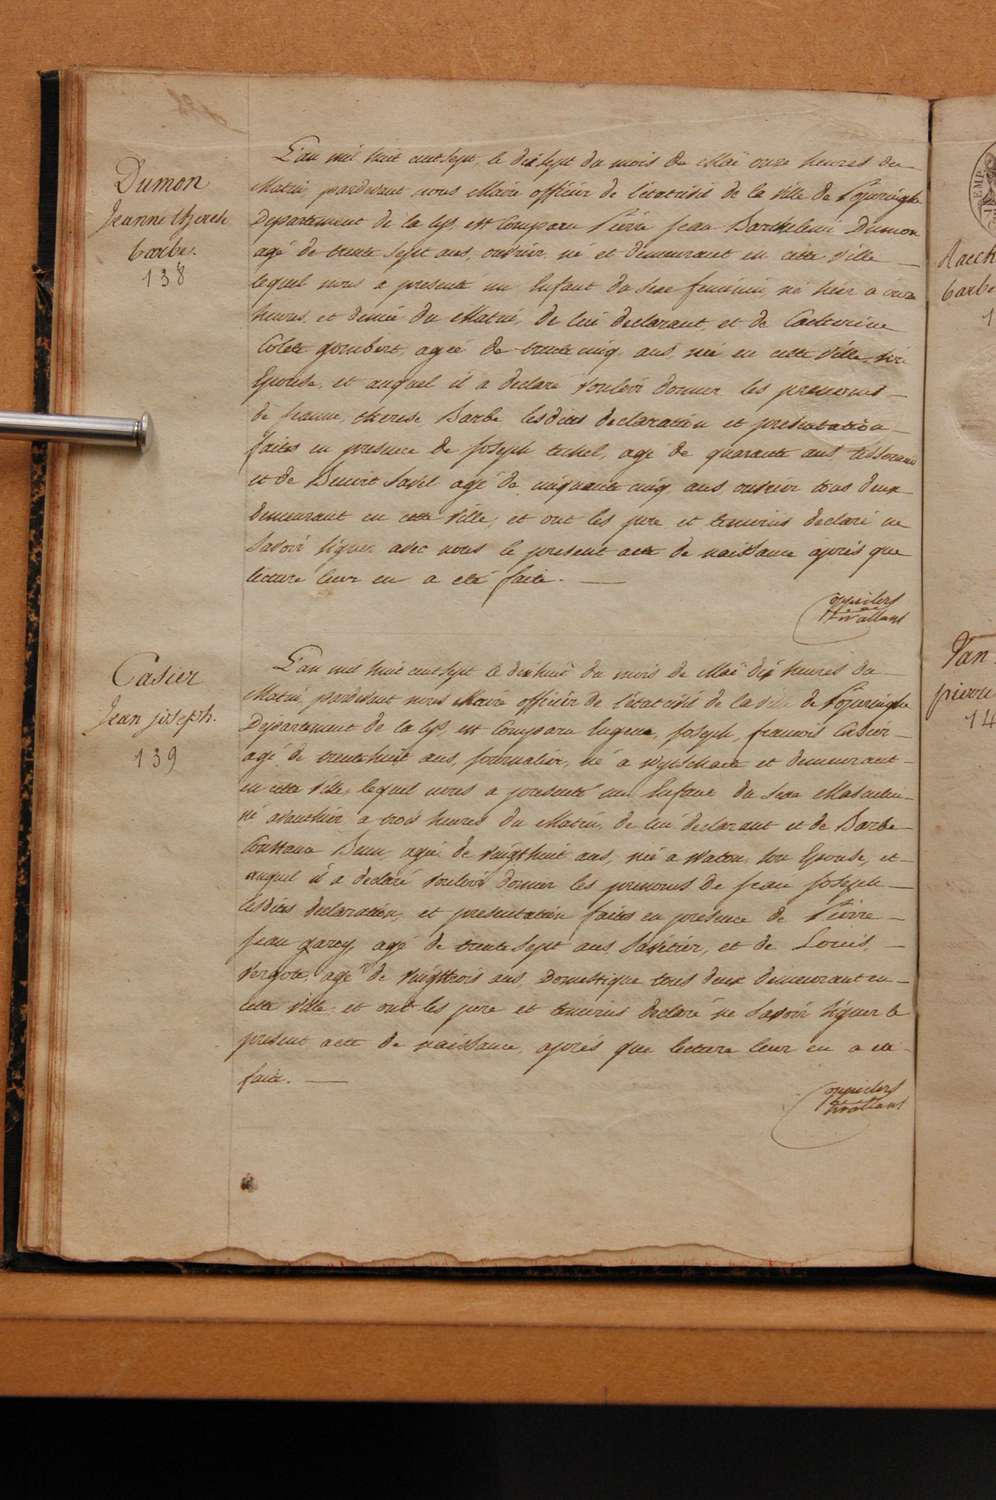 Dumon
Jeanne therese
barbe.
138
L'an mil huit cent sept, le dix sept du mois de Maï onze heures du
Matin, pardevant nous Maire officier de l'état civil de la ville de Poperinghe
Departement de la Lys, est Comparu Pierre Jean Barthelemi Dumon
agé de trente sept ans, ouvrier, né et demeurant en cette ville
lequel nous a presenté un Enfant du Sexe feminin, né hier a onze
heures, et demie du Matin, de lui declarant, et de Catherine
Colete gombert, agée de trente cinq ans, née en cette ville, son
Epouse, et auquel il a declaré vouloir donner les prenoms
de Jeanne, therese Barbe lesdites declaration et presentation
faites en presence de Joseph agé de quarante ans, tisserand
et de Benoit agé de cinquante cinq ans ouvrier tous deux
demeurant en cette ville, et ont les pere et temoins declaré ne
Savoir signer avec nous le present acte de naissance après que
lecture leur en a eté faite.
Casier
Jean joseph.
139
L'an mil huit cent sept le dix huit du mois de Maï dix heures du
Matin, pardevant nous Maire officier de l'état civil de la ville de Poperinghe
Departement de la Lys, est Comparu Eugene, Joseph, francois Casier
agé de trente huit ans, journalier, né à et demeurant
en cette ville, lequel nous a presenté un Enfant du Sexe Masculin
né avanthier a trois heures du Matin, de lui declarant et de Barbe
Constance agée de vingt huit ans, née a Watou, son Epouse, et
auquel il a declaré vouloir donner les prenoms de Jean Joseph
lesdites declaration, et presentation faites en presence de Pierre
Jean garcy, agé de trente sept ans Savetier, et de Louis,
Vergote, agé de vingt trois ans, Domestique tous deux demeurant en
cette ville, et ont les pere et temoins declaré ne Savoir signer le
present acte de naissance, apres que lecture leur en a eté
faite.
barbe
Van
pierre
14